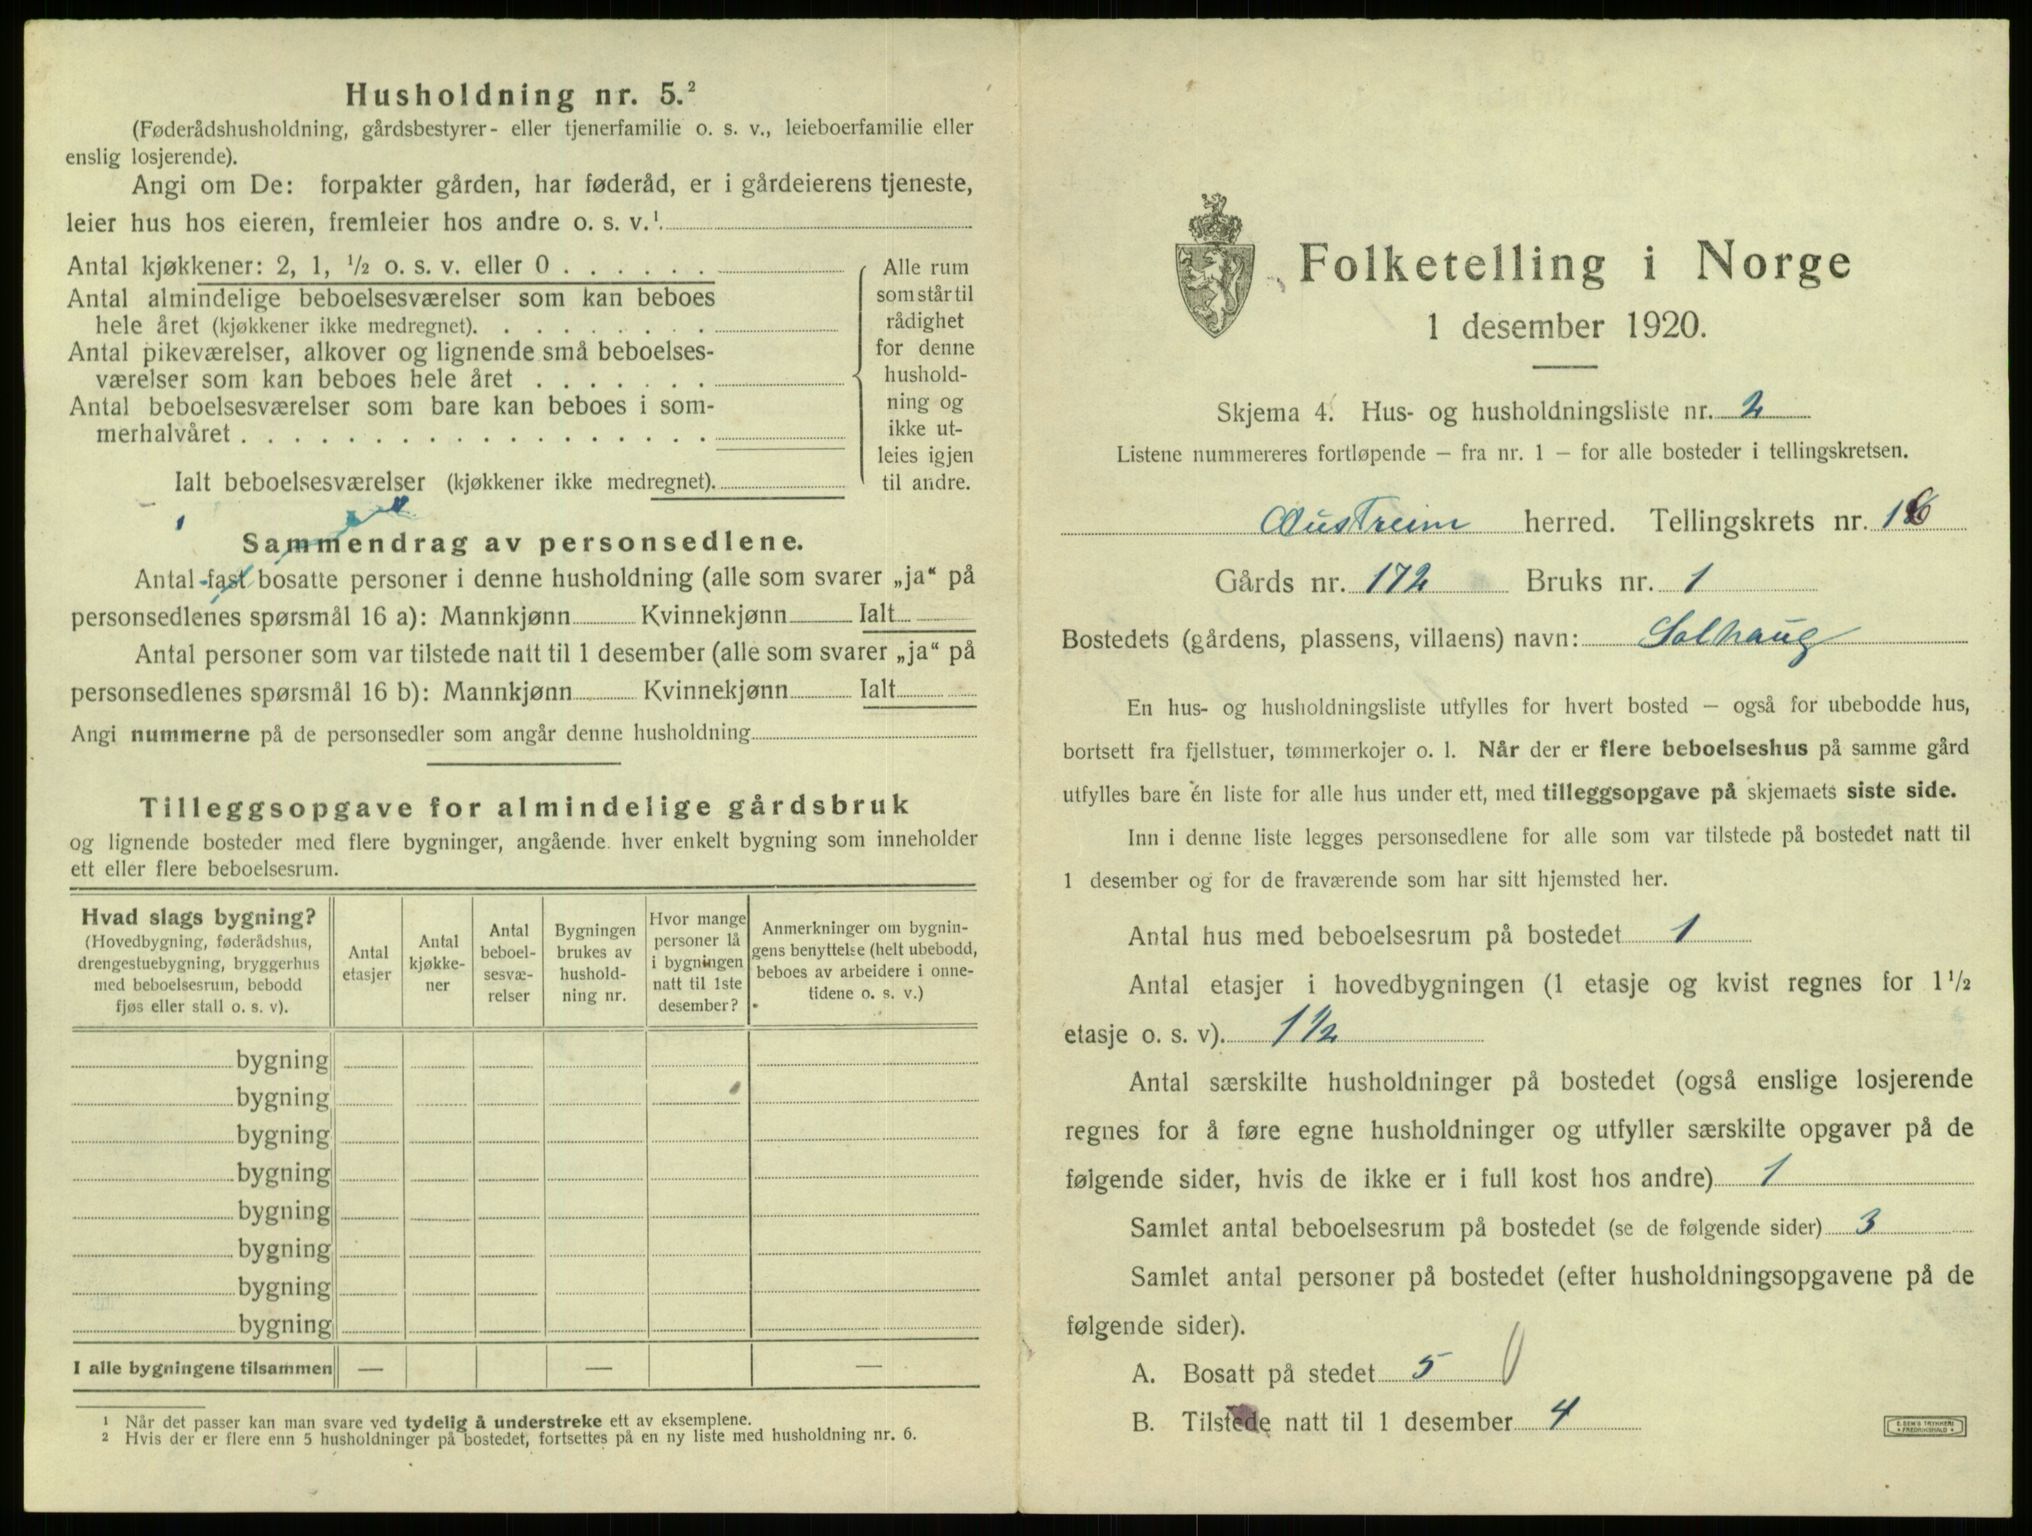 Husholdning nr. 5.²
(Føderådshusholdning, gårdsbestyrer- eller tjenerfamilie o. s. v., leieboerfamilie eller
enslig losjerende).
Angi om De: forpakter gården, har føderåd, er i gårdeierens tjeneste,
leier hus hos eieren, fremleier hos andre o. s. v.¹
Antal kjøkkener: 2, 1, ½ o. s. v. eller 0 . . . . . .
Antal almindelige beboelsesværelser som kan beboes
hele året (kjøkkener ikke medregnet). . . . . . . . .
Antal pikeværelser, alkover og lignende små beboelses-
værelser som kan beboes hele året . . . . . . .
Antal beboelsesværelser som bare kan beboes i som-
merhalvåret . . . . . . . . . . . . . . . . . .
Ialt beboelsesværelser (kjøkkener ikke medregnet).
Alle rum
som står til
rådighet
for denne
hushold-
ning og
ikke ut-
leies igjen
til andre.
Sammendrag av personsedlene.
Antal fast bosatte personer i denne husholdning (alle som svarer „ja“ på
personsedlenes spørsmål 16 a): Mannkjønn Kvinnekjønn Ialt
Antal personer som var tilstede natt til 1 desember (alle som svarer „ja“ på
personsedlenes spørsmål 16 b): Mannkjønn Kvinnekjønn Ialt
Angi nummerne på de personsedler som angår denne husholdning
Tilleggsopgave for almindelige gårdsbruk
og lignende bosteder med flere bygninger, angående hver enkelt bygning som inneholder
ett eller flere beboelsesrum.
Hvad slags bygning?
(Hovedbygning, føderådshus,
drengestuebygning, bryggerhus
med beboelsesrum, bebodd
fjøs eller stall o. s. v).
Antal
etasjer
Antal
kjøkke-
ner
Antal
beboel-
sesvæ-
relser
Bygningen
brukes av
hushold-
ning nr.
Hvor mange
personer lå
i bygningen
natt til 1ste
desember?
Anmerkninger om bygnin-
gens benyttelse (helt ubebodd,
beboes av arbeidere i onne-
tidene o. s. v.)
bygning
bygning
bygning
bygning
bygning
bygning
bygning
bygning
I alle bygningene tilsammen — — —
¹ Når det passer kan man svare ved tydelig å understreke ett av eksemplene.
² Hvis der er flere enn 5 husholdninger på bostedet, fortsettes på en ny liste med husholdning nr. 6.
Folketelling i Norge
1 desember 1920.
Skjema 4. Hus- og husholdningsliste nr. 2
Listene nummereres fortløpende – fra nr. 1 – for alle bosteder i tellingskretsen.
Austreim herred. Tellingskrets nr. 16
Gårds nr. 172 Bruks nr. 1
Bostedets (gårdens, plassens, villaens) navn: Solhaug
En hus- og husholdningsliste utfylles for hvert bosted – også for ubebodde hus,
bortsett fra fjellstuer, tømmerkojer o. l. Når der er flere beboelseshus på samme gård
utfylles bare én liste for alle hus under ett, med tilleggsopgave på skjemaets siste side.
Inn i denne liste legges personsedlene for alle som var tilstede på bostedet natt til
1 desember og for de fraværende som har sitt hjemsted her.
Antal hus med beboelsesrum på bostedet 1
Antal etasjer i hovedbygningen (1 etasje og kvist regnes for 1½
etasje o. s. v). 1½
Antal særskilte husholdninger på bostedet (også enslige losjerende
regnes for å føre egne husholdninger og utfyller særskilte opgaver på de
følgende sider, hvis de ikke er i full kost hos andre) 1
Samlet antal beboelsesrum på bostedet (se de følgende sider) 3
Samlet antal personer på bostedet (efter husholdningsopgavene på de
følgende sider).
A. Bosatt på stedet 5
B. Tilstede natt til 1 desember 4
E. SEM'S TRYKKERI
FREDRIKSHALD